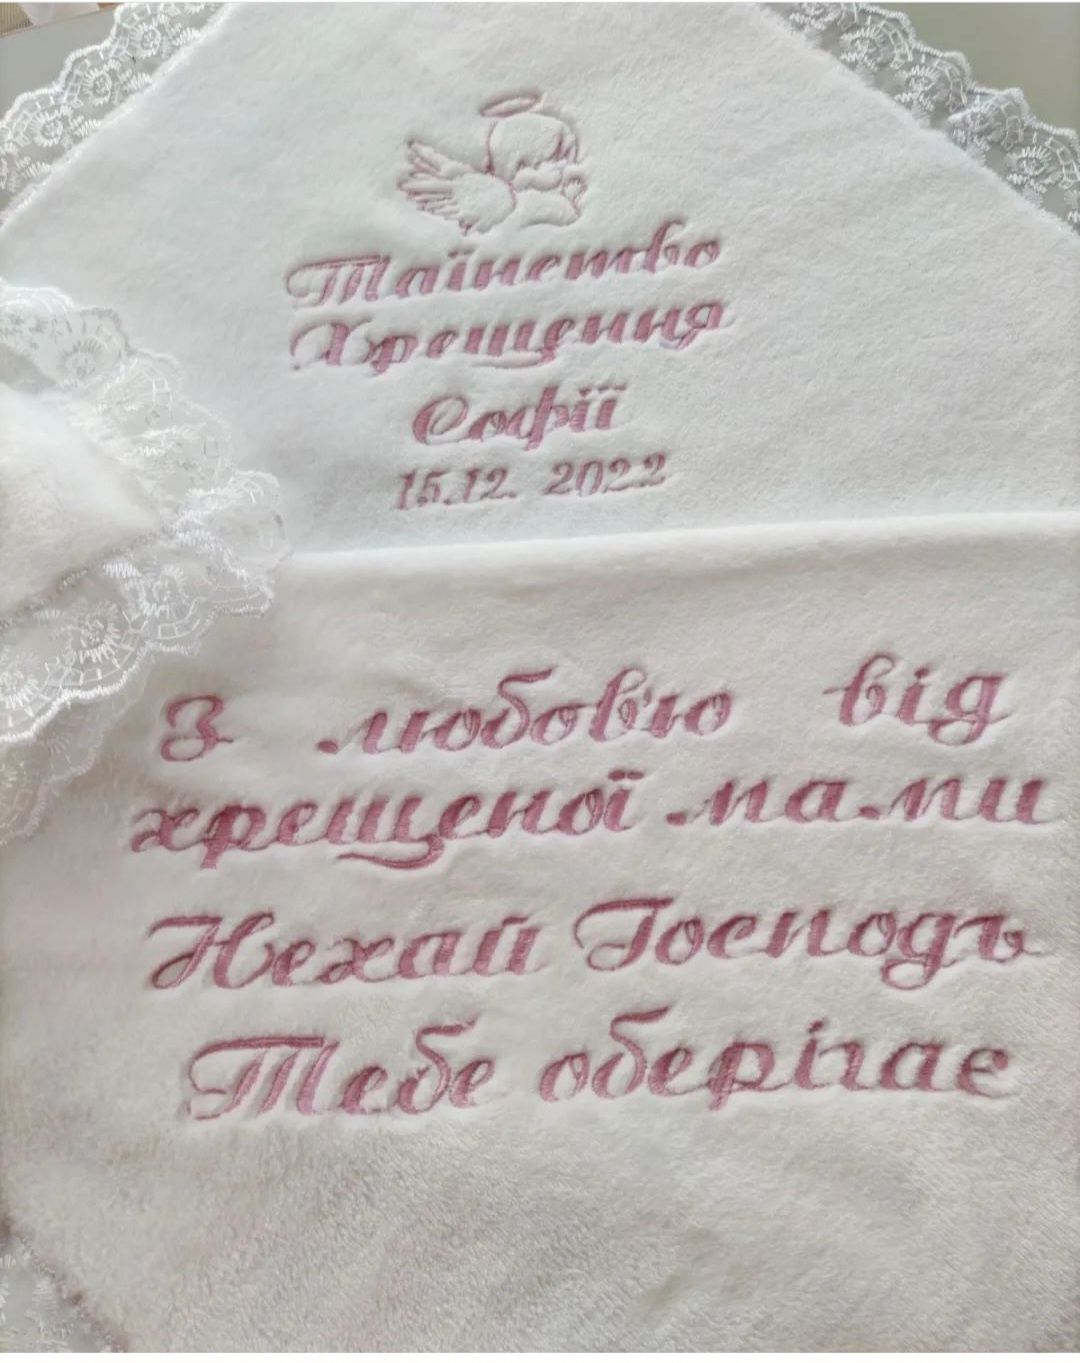 Таїнство
Хрещення
Софії
15.12. 2022
З любов'ю від
хрещеної мами
Нехай Господь
Тебе оберігає